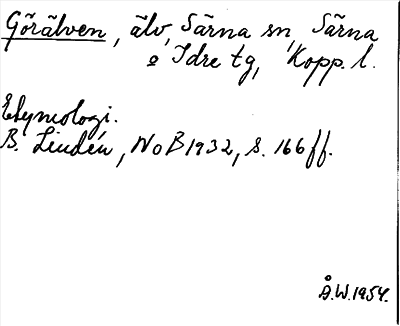 Görälven, älv, Särna sn, Särna
o Idre tg, Kopp. l.
Etymologi.
B. Lindén, NoB 1932, s. 166 ff.
Å.W. 1954.